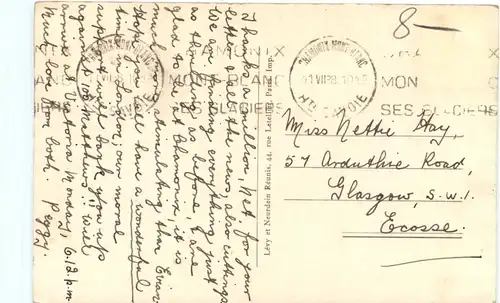 Thanks a million, Net for your
letter & all the news, also cuttings
We are finding everything just
as thrilling as before, & are
glad to be at Chamonix, it is
much more stimulating than Evian
Hope you will have a wonderful
time in London; our moral
support will back you up
against Job Matthews!! will
arrive at Victoria Monday, 6.12 p.m.
Much love from both. Peggy.
Lévy et Neurdein Réunis, 44, rue Letellier, Paris Imp.
8—
CHAMONIX-MONT-BLANC
HTE SAVOIE
CHAMONIX
MONT-BLANC
SES GLACIERS
CHAMONIX-MONT-BLANC
HTE SAVOIE
MON
SES GLACIERS
Miss Nettie Hay,
57 Arduthie Road,
Glasgow, S.W.1.
Ecosse.